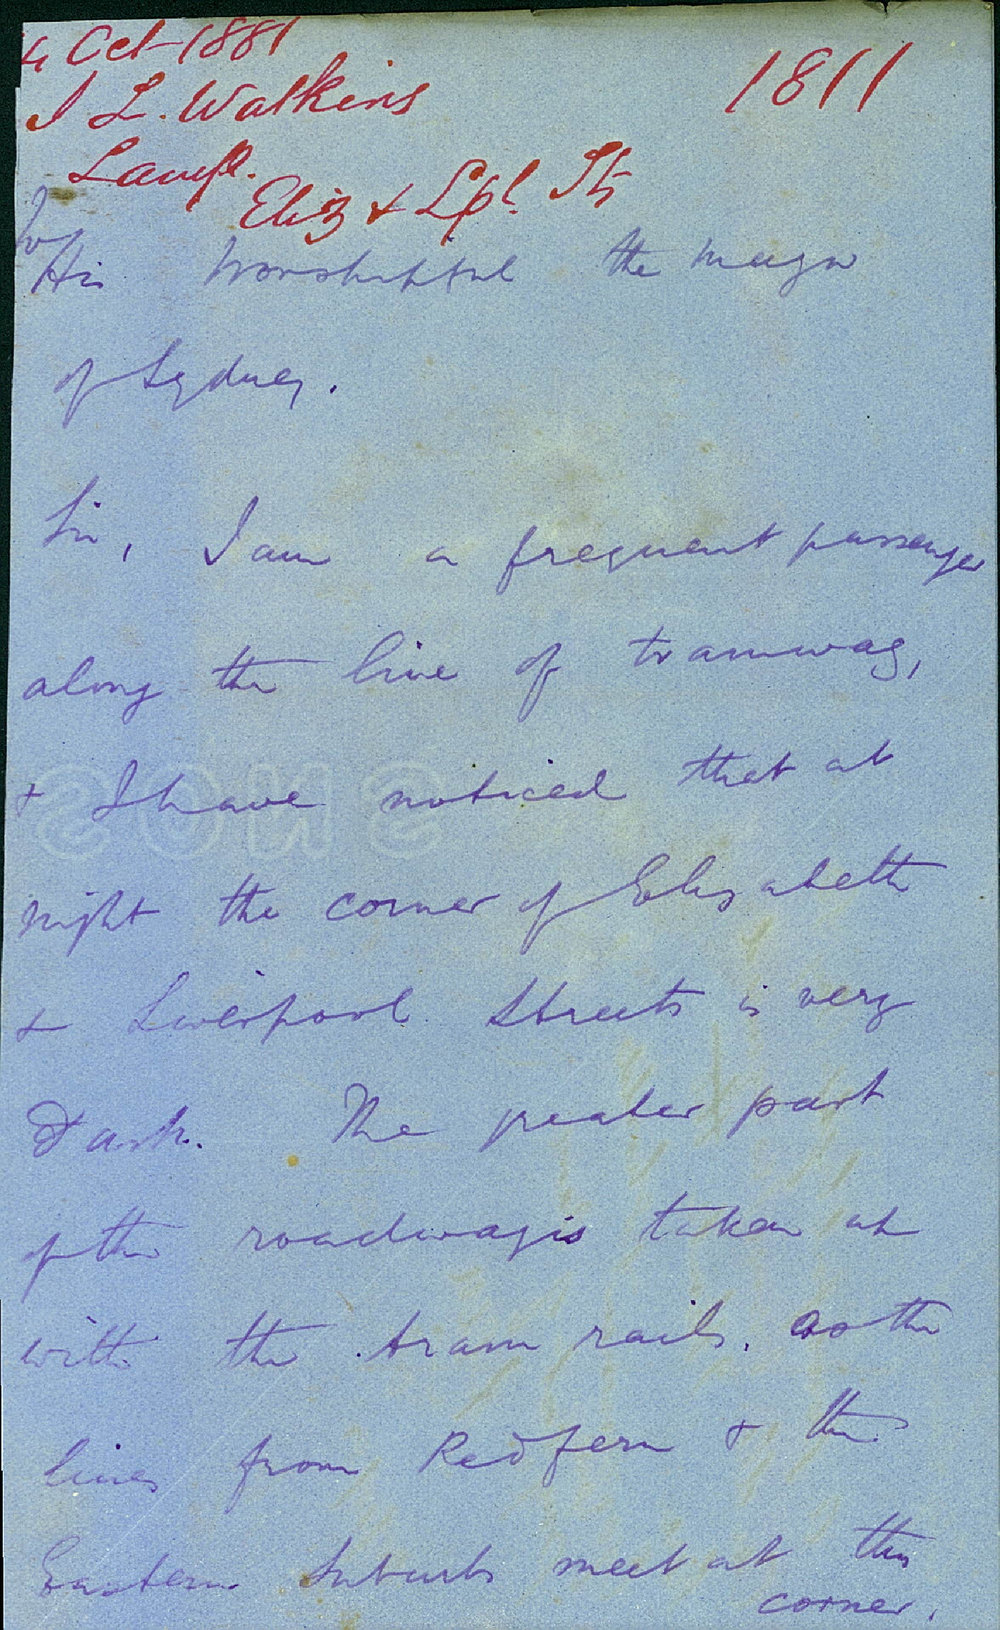 4 Oct 1881
J L. Watkins
1811
Lamp.
Eliz & Lpl. St
To
His Worshipful the Mayor
of Sydney.
Sir, I am a frequent passenger
along the line of tramway,
& I have noticed that at
night the corner of Elizabeth
& Liverpool Streets is very
dark. The greater part
of the roadway is taken up
with the tram rails. as the
lines from Redfern & the
Eastern Suburbs meet at this
corner.
SONS